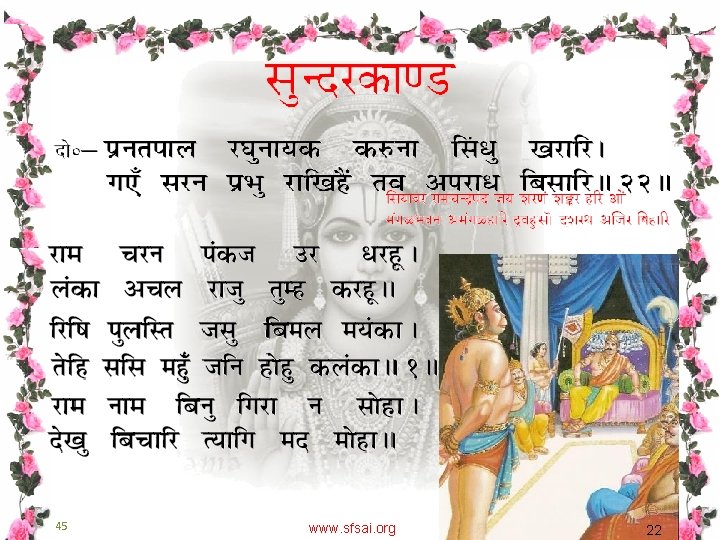 सुन्दरकाण्ड
दो०— प्रनतपाल रघुनायक करुना सिंधु खरारि।
गएँ सरन प्रभु राखिहैं तव अपराध बिसारि॥ २२॥
सियावर रामचन्द्रपद जय शरणं शङ्कर हरि ओं
मंगळभवन अमंगळहारि द्रवहुसो दशरथ अजिर बिहारि
राम चरन पंकज उर धरहू।
लंका अचल राजु तुम्ह करहू॥
रिषि पुलस्ति जसु बिमल मयंका।
तेहि ससि महुँ जनि होहु कलंका॥ १॥
राम नाम बिनु गिरा न सोहा।
देखु बिचारि त्यागि मद मोहा॥
45
www.sfsai.org
22